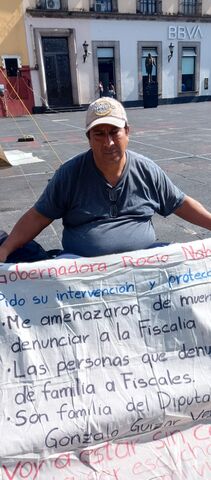 BBVA
Gobernadora Rocío Nah
Pido su intervención y protecc
• Me amenazaron de muer
denunciar a la Fiscalia
• Las personas que denu
de familia a Fiscales.
• Son familia del Diputa
Gonzalo Guizar Va
voy a estar sin co